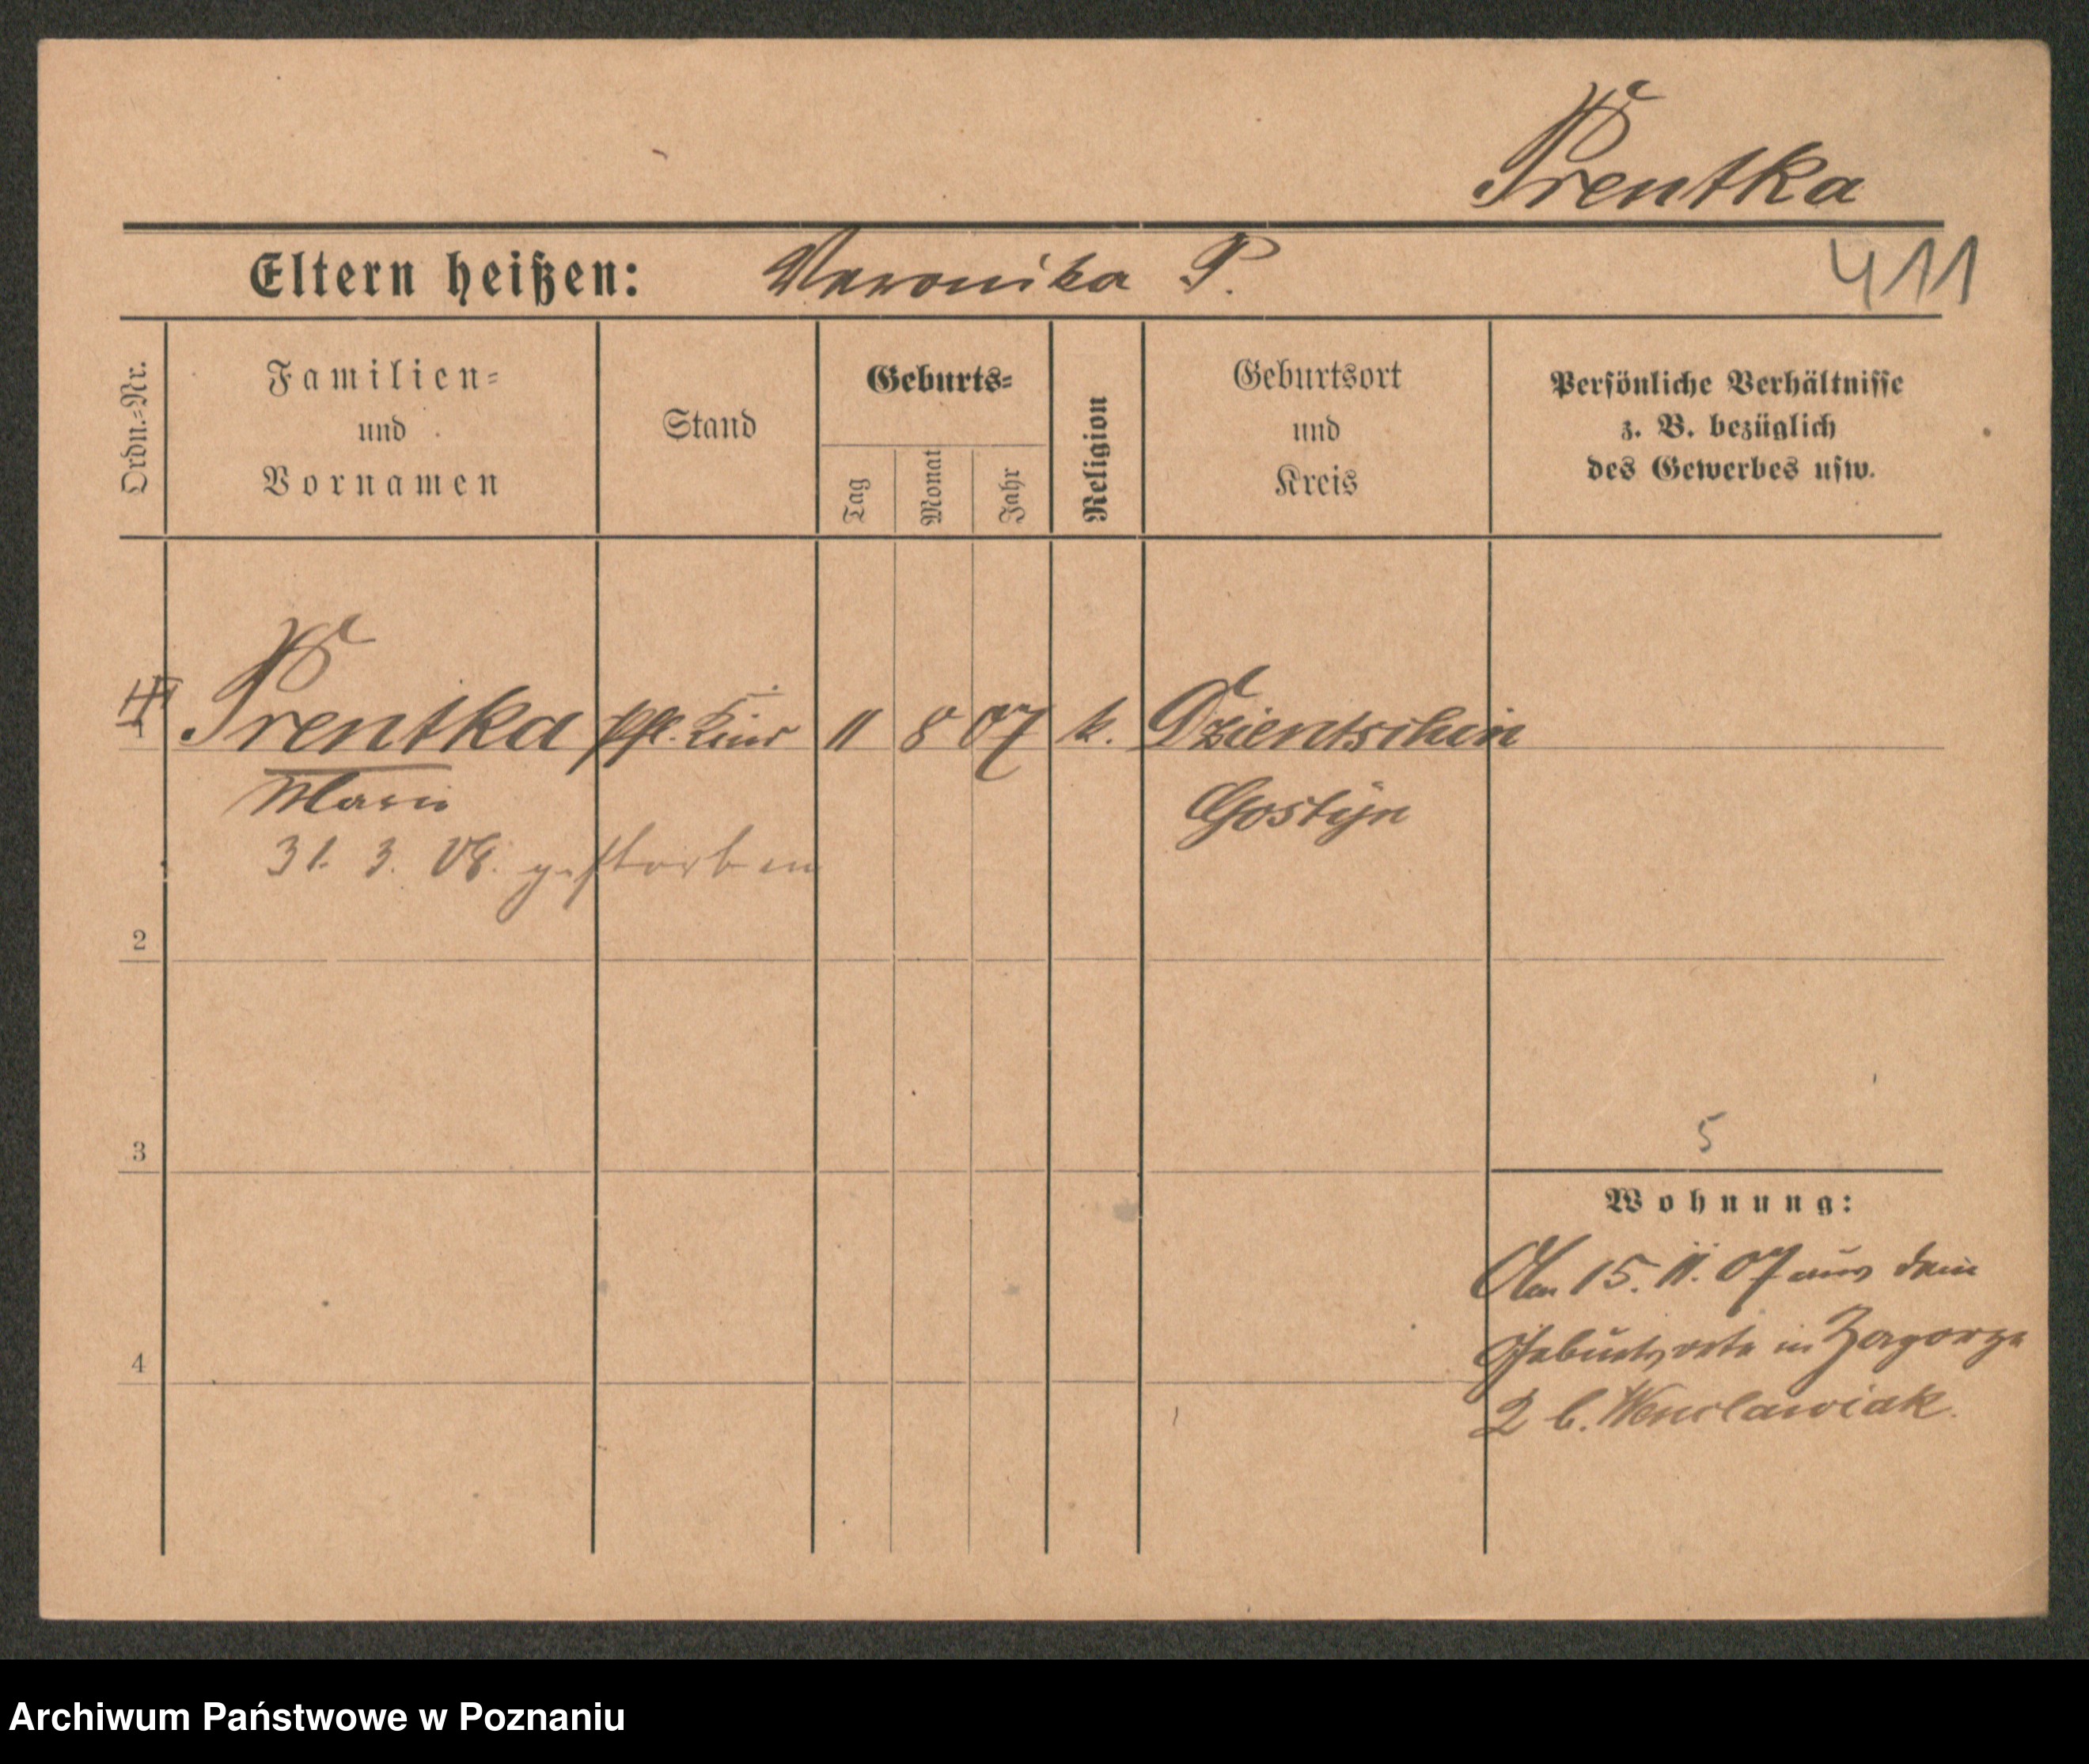 Prentka
Eltern heißen: Veronika P.
411
Ordn.=Nr.
Familien=
und
Vornamen
Stand
Geburts=
Tag
Monat
Jahr
Religion
Geburtsort
und
Kreis
Persönliche Verhältnisse
z. B. bezüglich
des Gewerbes usw.
1 Prentka Pfl. Kind 11 8 07 k. Dzientschin
Marie Gostyn
31. 3. 08. gestorben
2
3
5
Wohnung:
Am 15. 11. 07 aus dem
Geburtsorte in Zagorze
2 b. Wenclawiak.
4
Archiwum Państwowe w Poznaniu